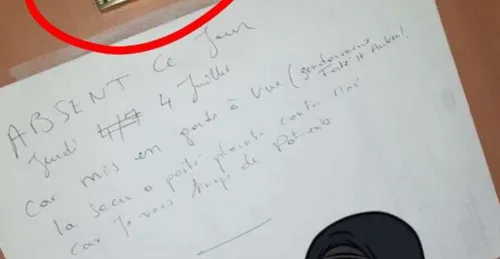 ABSENT ce Jour
Jeudi 4 Juillet
Car mis en garde à vue (gendarmerie
Ferté St Aubin)
la secu a porté plainte contre moi
car Je vois trop de Patients